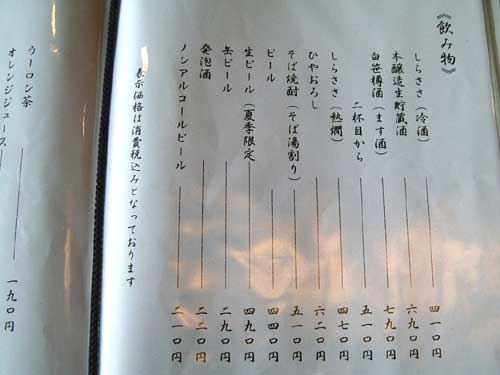 《飲み物》
しらささ（冷酒） 四一〇円
本醸造生貯蔵酒 六九〇円
白笹樽酒（ます酒） 七九〇円
二杯目から 五一〇円
しらささ（熱燗） 四七〇円
ひやおろし 六二〇円
そば焼酎（そば湯割り） 五一〇円
ビール 四四〇円
生ビール（夏季限定 四九〇円
缶ビール 二九〇円
発泡酒 二二〇円
ノンアルコールビール 二一〇円
表示価格は消費税込みとなっております
ウーロン茶
オレンジジュース 一九〇円